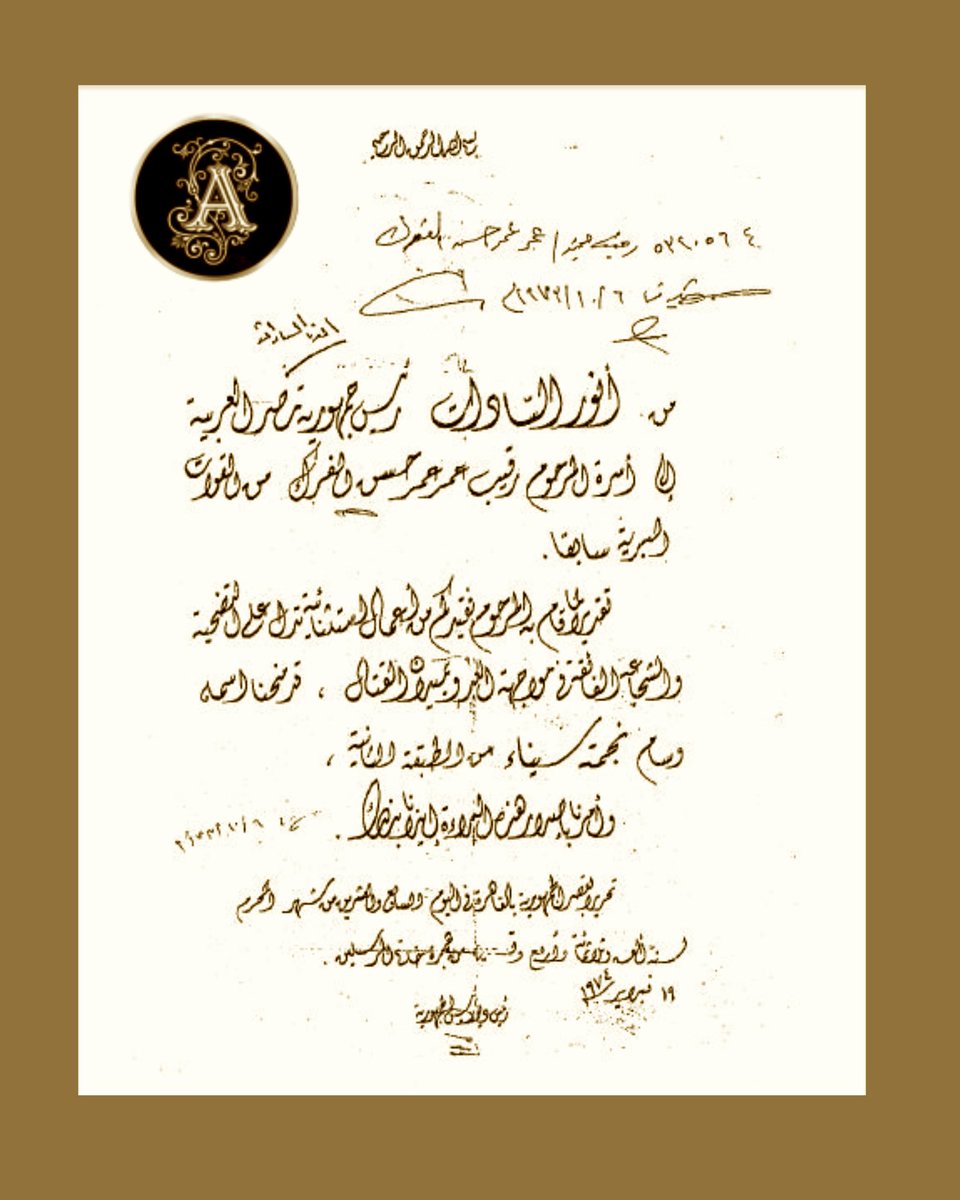 A
بسم الله الرحمن الرحيم
رقيب مجند / عمر عمر حسن
أنور السادات
من أنور السادات رئيس جمهورية مصر العربية
إلى أسرة المرحوم رقيب عمر عمر حسن الفرك من القوات
البرية سابقا .
تقديرا لما قام به المرحوم فقيدكم من أعمال استثنائية تدل على التضحية
والشجاعة الفائقة فى مواجهة العدو بميدان القتال ، قد منحنا اسمه
وسام نجمة سيناء من الطبقة الثانية ،
وأمرنا بإصدار هذه البراءة إيذانا بذلك .
تحريرا بقصر الجمهورية بالقاهرة فى اليوم السابع والعشرين من شهر المحرم
لسنة ألف وثلاثمائة وأربع وتسعين من هجرة خاتم المرسلين .
١٩ فبراير ١٩٧٤
رئيس ديوان رئيس الجمهورية